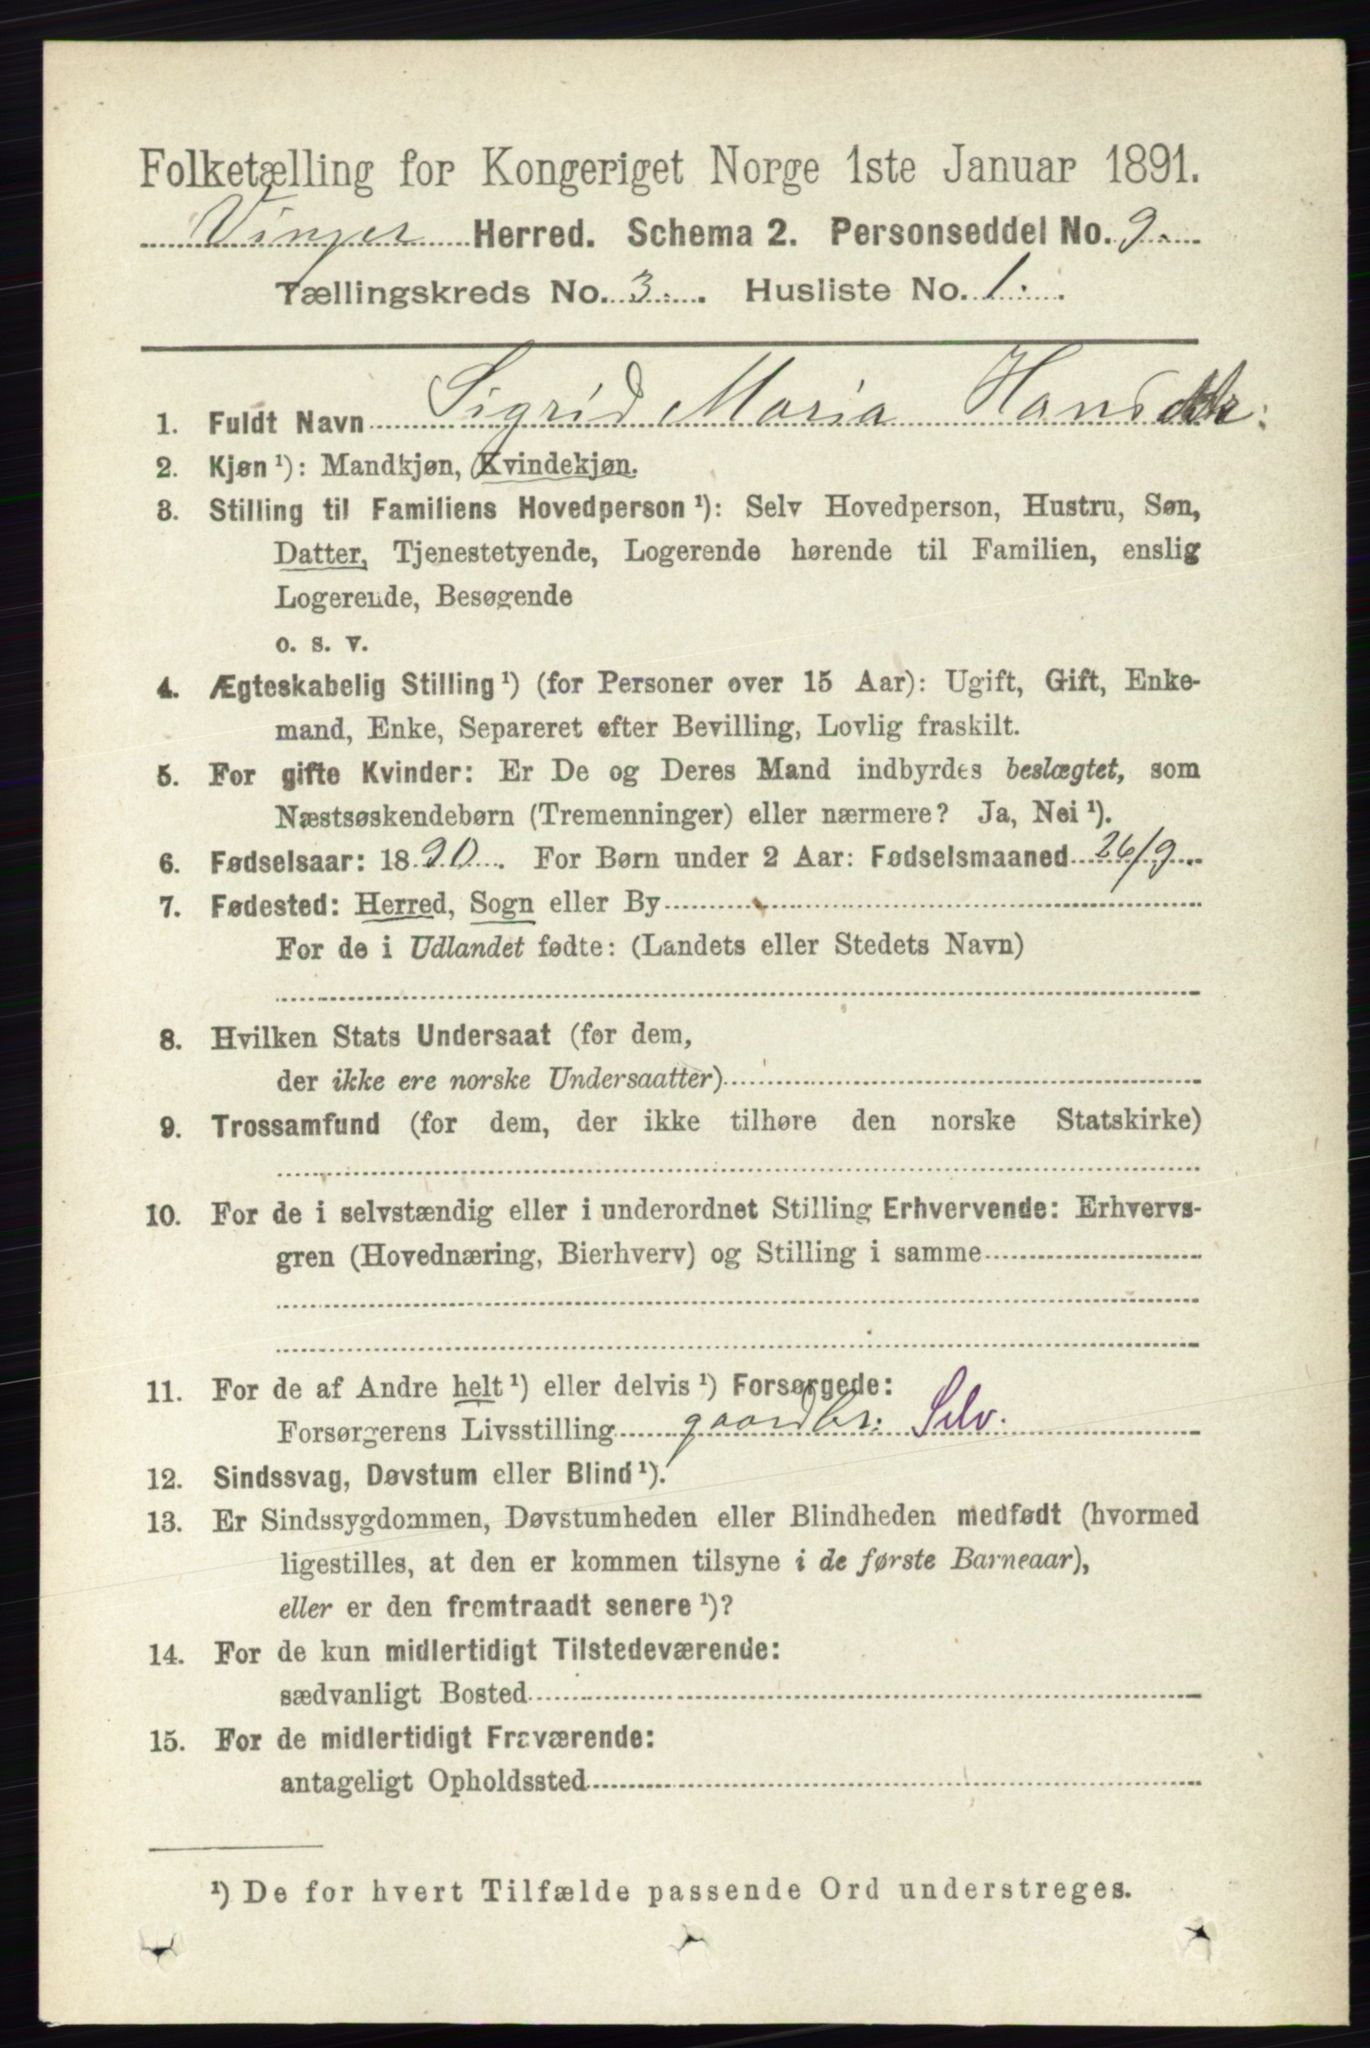 Folketælling for Kongeriget Norge 1ste Januar 1891.
Vinger Herred. Schema 2. Personseddel No. 9.
Tællingskreds No. 3. Husliste No. 1.
1. Fuldt Navn Sigrid Maria Hansdtr.
2. Kjøn ¹): Mandkjøn, Kvindekjøn.
3. Stilling til Familiens Hovedperson ¹): Selv Hovedperson, Hustru, Søn,
Datter, Tjenestetyende, Logerende hørende til Familien, enslig
Logerende, Besøgende
o. s. v.
4. Ægteskabelig Stilling ¹) (for Personer over 15 Aar): Ugift, Gift, Enke-
mand, Enke, Separeret efter Bevilling, Lovlig fraskilt.
5. For gifte Kvinder: Er De og Deres Mand indbyrdes beslægtet, som
Næstsøskendebørn (Tremenninger) eller nærmere? Ja, Nei ¹).
6. Fødselsaar: 1890. For Børn under 2 Aar: Fødselsmaaned 26/9
7. Fødested: Herred, Sogn eller By
For de i Udlandet fødte: (Landets eller Stedets Navn)
8. Hvilken Stats Undersaat (for dem,
der ikke ere norske Undersaatter)
9. Trossamfund (for dem, der ikke tilhøre den norske Statskirke)
10. For de i selvstændig eller i underordnet Stilling Erhvervende: Erhvervs-
gren (Hovednæring, Bierhverv) og Stilling i samme
11. For de af Andre helt ¹) eller delvis ¹) Forsørgede:
Forsørgerens Livsstilling gaardbr. Selv.
12. Sindssvag, Døvstum eller Blind ¹).
13. Er Sindssygdommen, Døvstumheden eller Blindheden medfødt (hvormed
ligestilles, at den er kommen tilsyne i de første Barneaar),
eller er den fremtraadt senere ¹)?
14. For de kun midlertidigt Tilstedeværende:
sædvanligt Bosted
15. For de midlertidigt Fraværende:
antageligt Opholdssted
¹) De for hvert Tilfælde passende Ord understreges.